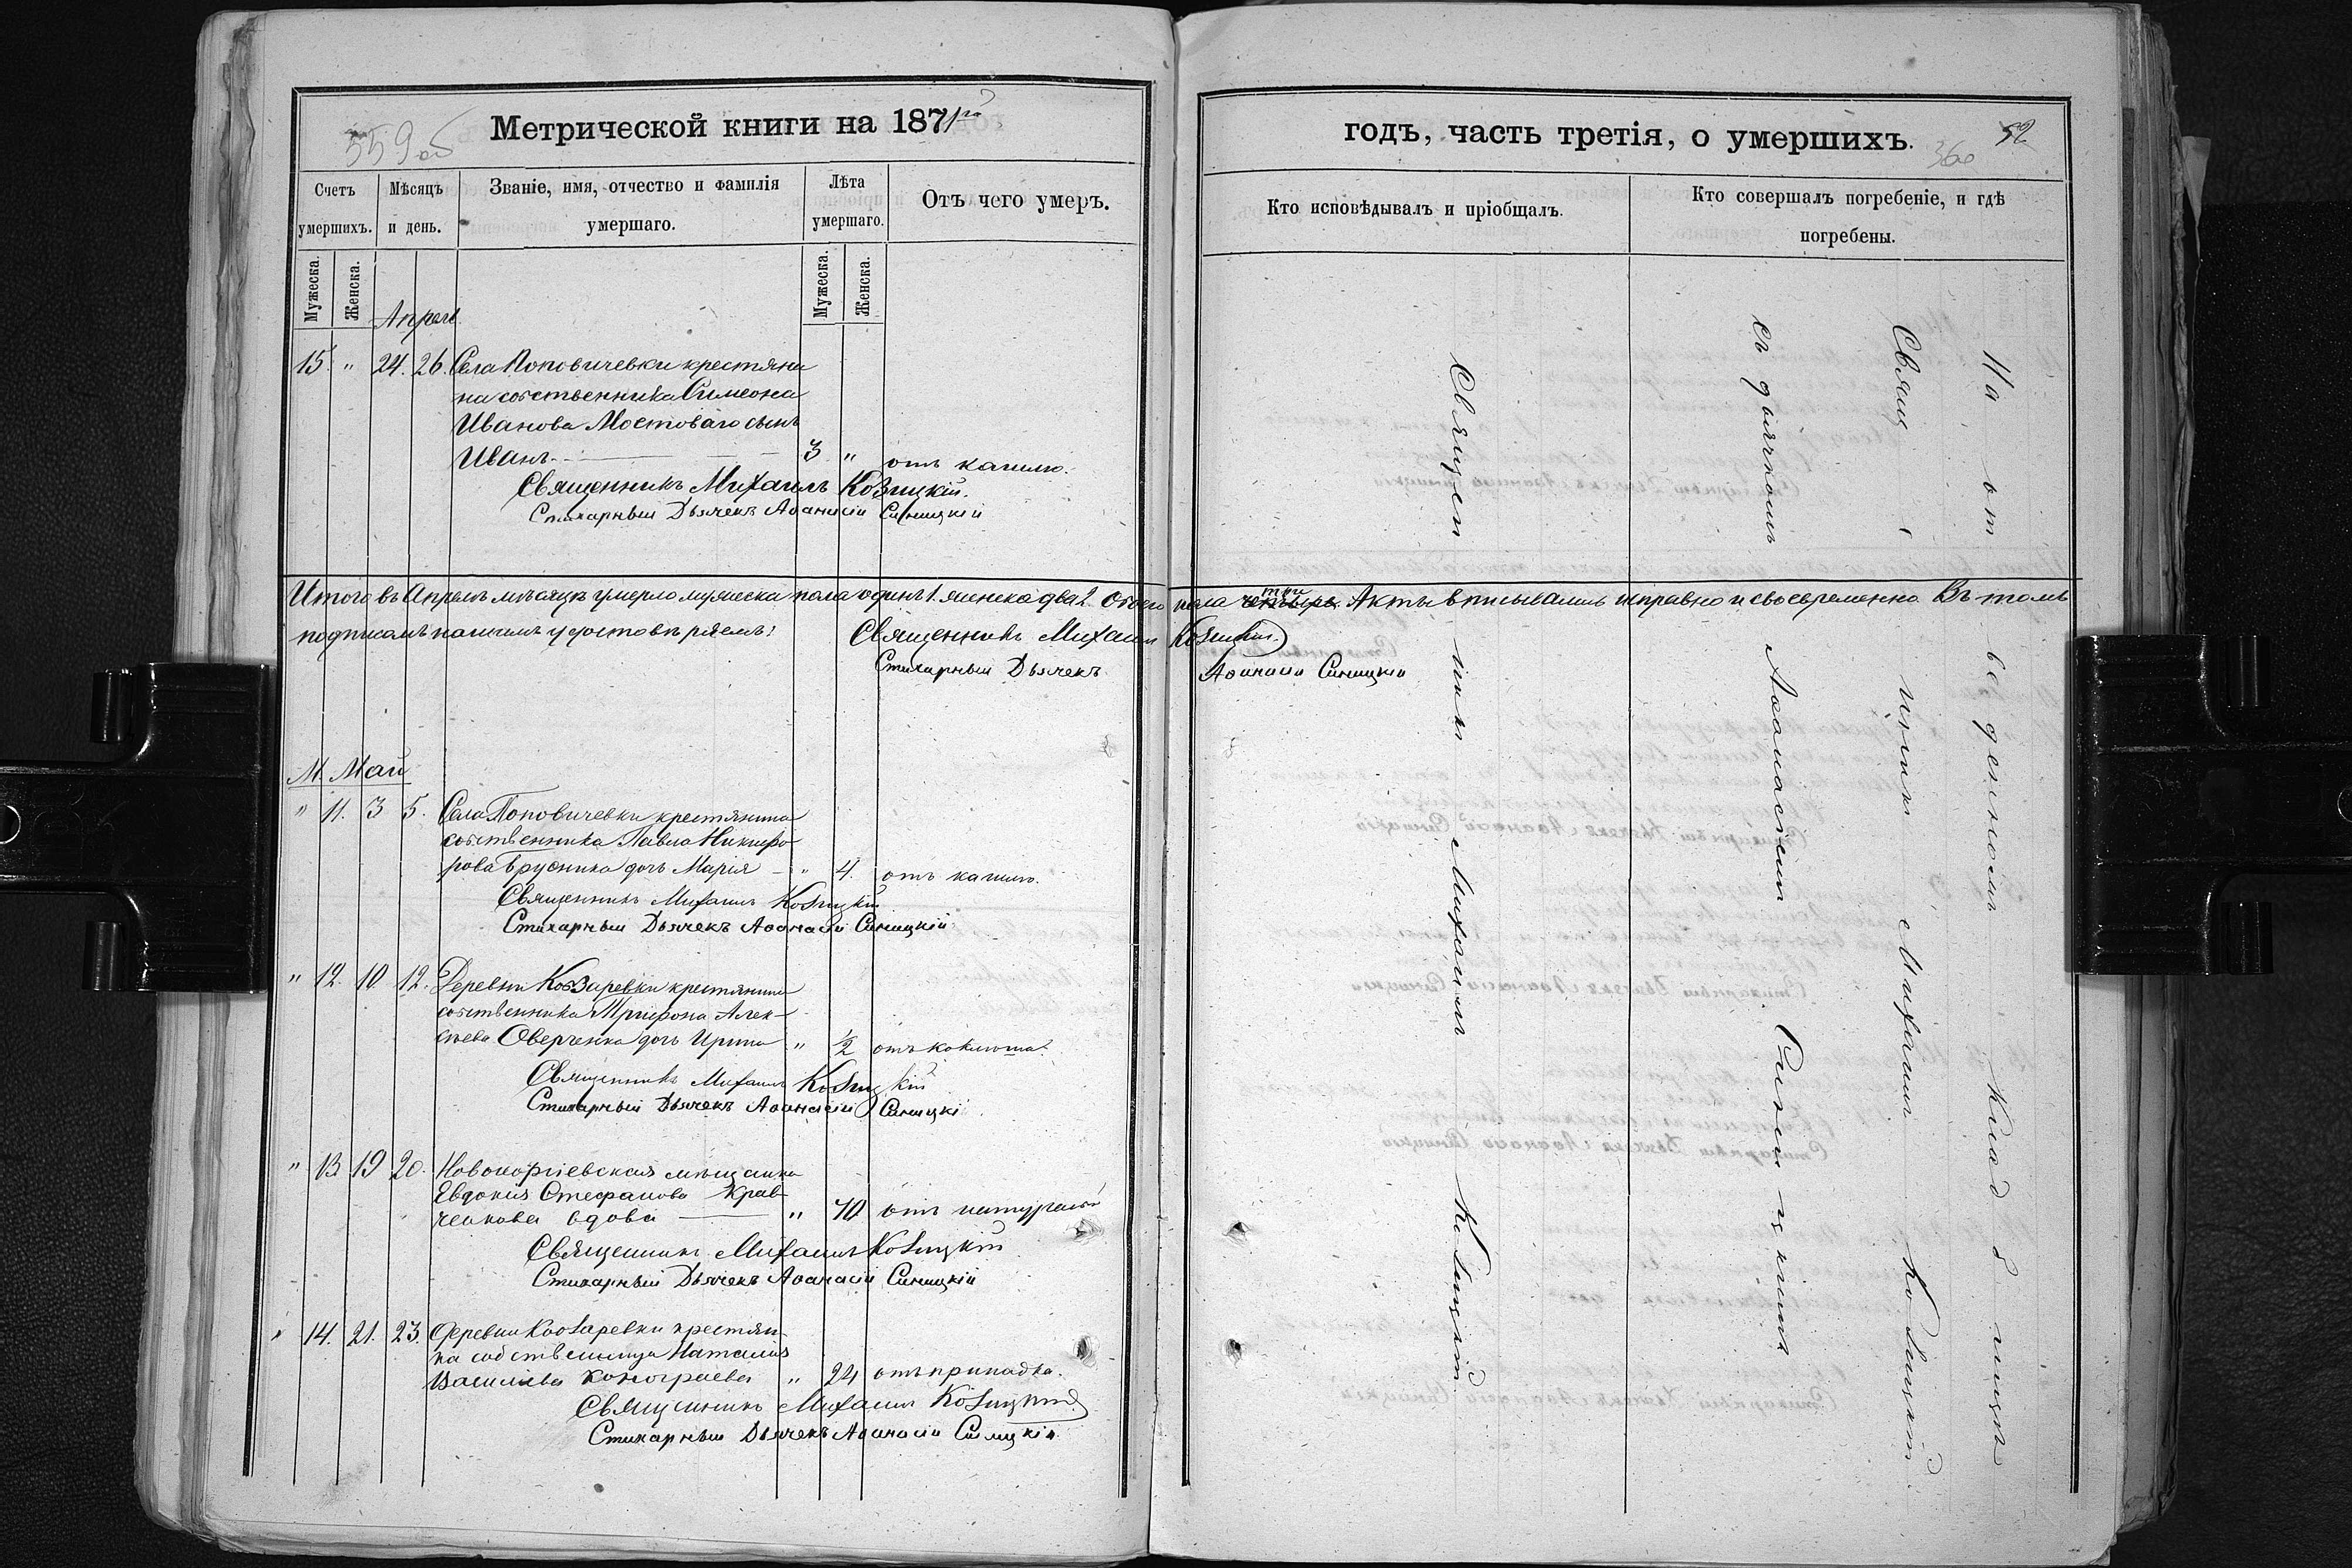 559об
Метрической книги на 1871го
Счетъ умершихъ.
Мѣсяцъ и день.
Званіе, имя, отчество и фамилія умершаго.
Лѣта умершаго.
Отъ чего умеръ.
Мужеска.
Женска.
Мужеска.
Женска.
Апрель
15 " 24. 26. Села Поповичевки крестяни
на собственника Симеона
Иванова Мостоваго сынъ
Иванъ 3 " отъ кашлю.
Священникъ Михаилъ Козицкій.
Стихарный Дьячекъ Аѳанасій Синицкій
Итого въ Апрелѣ мѣсяцѣ умерло мужеска пола одинъ 1. женска два 2. Обоего
подписомъ нашимъ удостовѣряемъ:
Священникъ Михаилъ
Стихарный Дьячекъ
М. Май
" 11. 3 5. Села Поповичевки крестянина
собственника Павла Никифо-
рова Врусника дочь Марія " 4. отъ кашлю.
Священникъ Михаилъ Козицкій
Стихарный Дьячекъ Аѳанасій Синицкій
" 12. 10 12. Деревни Козаревки крестянина
собственника Трифона Алек-
сѣева Оверченка дочь Ирина " 1/2 отъ коклюша.
Священникъ Михаилъ Козицкій
Стихарный Дьячекъ Аѳанасій Синицкій
" 13 19 20. мѣщанка
Евдокія Стефанова Крав-
ченкова вдова " 70 отъ натуральной
Священникъ Михаилъ Козицкій
Стихарный Дьячекъ Аѳанасій Синицкій
" 14. 21. 23. Деревни Козаревки крестян-
ка собственница Наталія
Василіева " 24 отъ припадка.
Священникъ Михаилъ Козицкій
Стихарный Дьячекъ Аѳанасій Синицкій
годъ, часть третія, о умершихъ.
52
360
Кто исповѣдывалъ и пріобщалъ.
Кто совершалъ погребеніе, и гдѣ погребены.
пола три четыре. Акты вписывались исправно и своевременно Въ томъ
Козицкій.
Аѳанасій Синицкій
Священникъ Михаилъ Козицкій
Священникъ Михаилъ Козицкій
съ дьячкомъ Аѳанасіемъ Синицкимъ
На отведенномъ кладбищѣ